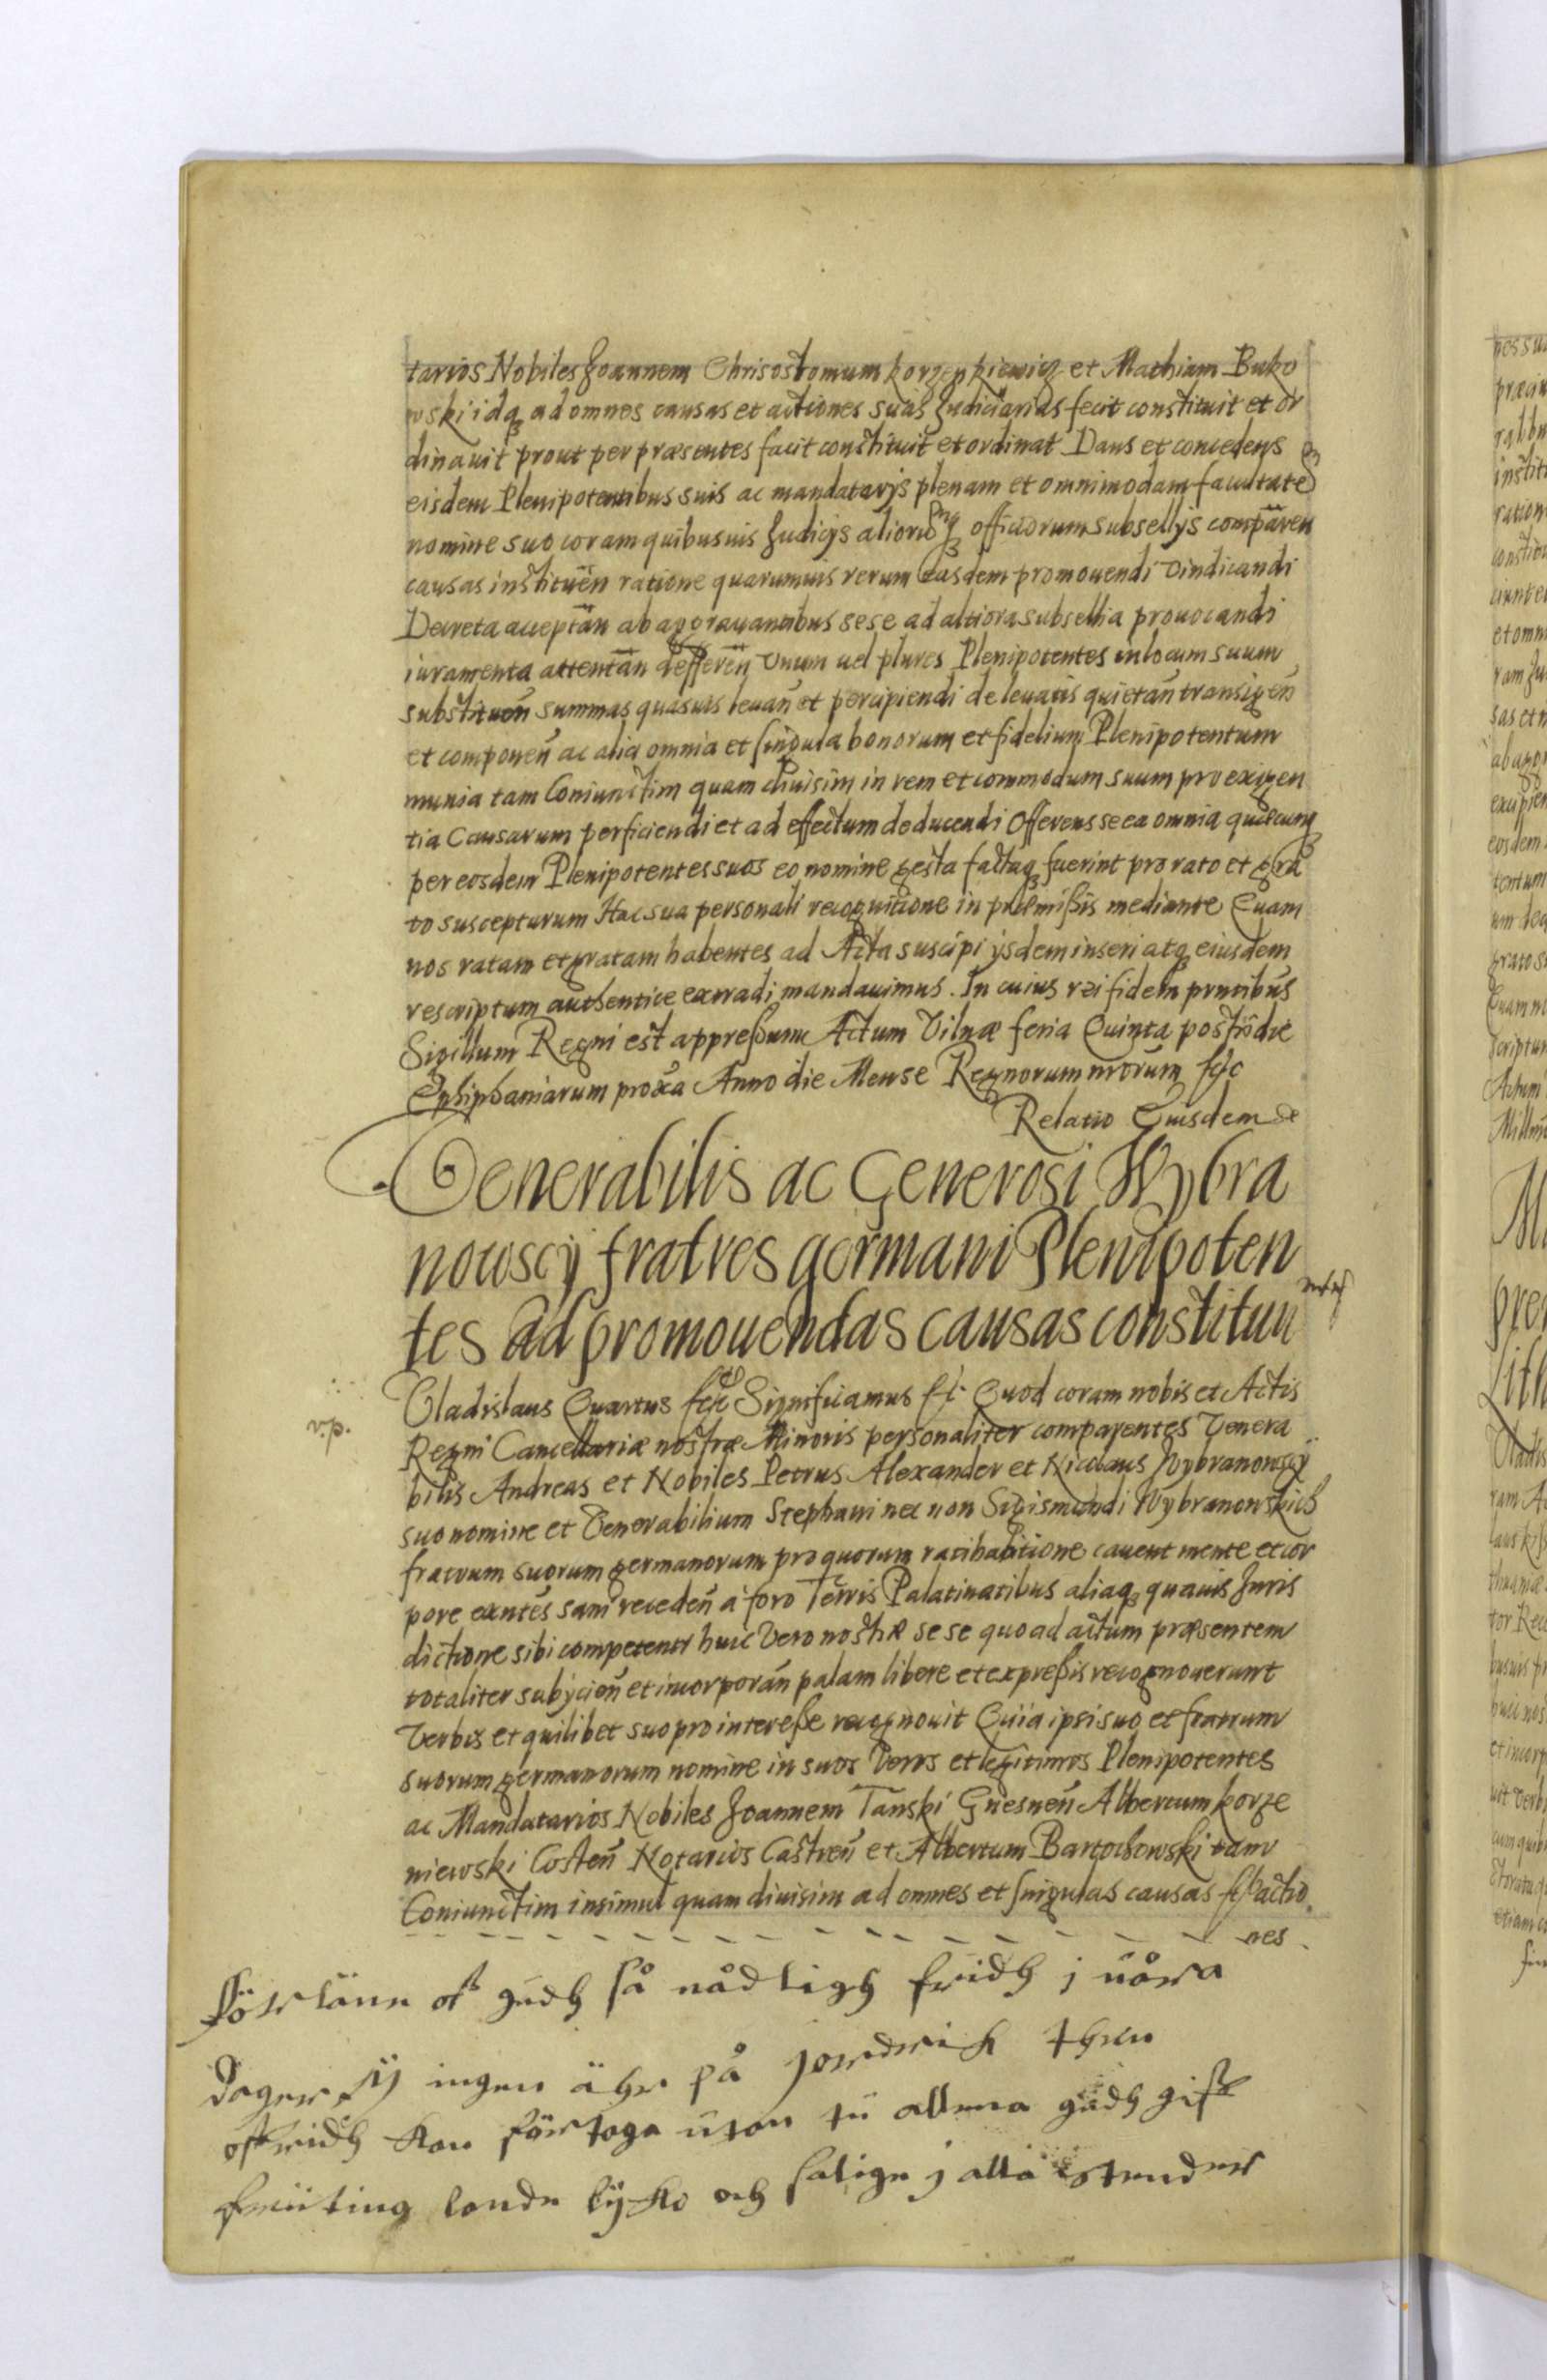 tarios Nobiles Joannem Chrisostomum Korzenkiewicz et Mathiam Buko
wski idq ad omnes causas et actiones suas Judiciarias fecit constituit et or
dinauit prout per praesentes facit constituit et ordinat Dans et concedens
eisdem Plenipotentibus suis ac mandatarÿs plenam et omnimodam facultatem
nomine suo coram quibusuis Judicÿs aliorumq officiorum subsellÿs comparen
causas instituen ratione quarumuis rerum easdem promouendi vindicandi
Decreta acceptan ab aggrauantibus sese ad altiora subsellia prouocandi
iuramenta attentan defferen vnum uel plures Plenipotentes in locum suum
substituen summas quasuis leuan et percipiendi de leuatis quietan transigen
et componen ac alia omnia et singula bonorum et fidelium Plenipotentum
munia tam Coniunctim quam diuisim in rem et commodum suum pro exigen
tia Causarum perficiendi et ad effectum deducendi Offerens se ea omnia quaecunq
per eosdem Plenipotentes suos eo nomine gesta factaq fuerint pro rato et gra
to suscepturum Hac sua personali recognitione in praemißis mediante Quam
nos ratam et gratam habentes ad Acta suscipi ÿsdem inseri atq eiusdem
rescriptum authentice extradi mandauimus. In cuius rei fidem prntibus
Sigillum Regni est appreßum Actum Vilnae feria Quinta post die
Ephiphaniarum proxa Anno die Mense Regnorum nrorum &c
Relatio Eiusdem
Venerabilis ac Generosi Wybra
nowscÿ fratres germani Plenipoten
tes ad promouendas causas constituu
Vladislaus Quartus &c Significamus &c. Quod coram nobis et Actis
Regni Cancellariae nostrae Minoris personaliter comparentes Venera
bilis Andreas et Nobiles Petrus Alexander et Nicolaus Wybranowscÿ
suo nomine et Venerabilium Stephani nec non Sigismundi Wybranowskich
fratrum suorum germanorum pro quorum ratihabitione cauent mente et cor
pore exntes sani receden a foro Terris Palatinatibus aliaq quauis Juris
dictione sibi competenti huic vero nostrae sese quoad actum praesentem
totaliter subÿcien et incorporan palam libere et expreßis recognouerunt
Verbis et quilibet suo pro intereße recognouit Quia ipsi suo et fratrum
suorum germanorum nomine in suos Veros et legitimos Plenipotentes
ac Mandatarios Nobiles Joannem Tanski Gnesnen Albertum Korze
niewski Costen Notarios Castren et Albertum Bartochowski tam
Coniunctim insimul quam diuisim ad omnes et singulas causas actio
nes
Förlänn oß gudh så nådligh fridh i våra
dager tÿ ingen ähr på jordrich then
oß fridh kan förtaga vtan tu allena gudh gif
landn lÿcko och salign j alla stender